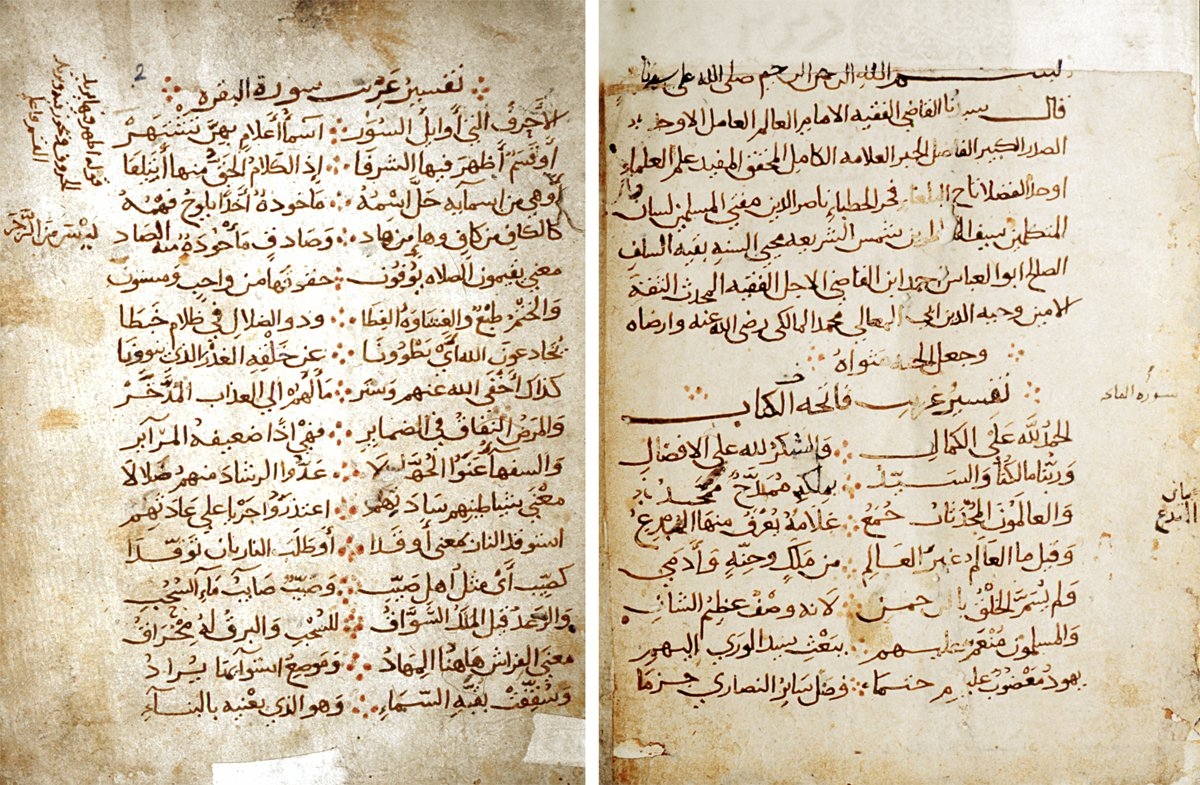 بسم الله الرحمن الرحيم صلى الله على سيدنا
قال سيدنا القاضي الفقيه الامام العالم العامل الاوحد
الصدر الكبير الفاضل الحبر العلامة الكامل المحقق المفيد علم العلماء
اوحد الفضلا تاج البلغاء فخر الخطباء ناصر الدين مفتي المسلمين لسان
المتكلمين سيف شمس الشريعه محيي السنه بقية السلف
الصلح ابو العباس احمد ابن القاضي الاجل الفقيه المحدث الثقة
الامين وجيه الدين ابي المعالي محمد المالكي رضي الله عنه وارضاه
وجعل الجنة مثواه
تفسير غريب فاتحة الكتاب
سورة الفاتحة
الحمد لله على الكمال والشكر لله على الافضال
وربنا مالكنا والسيد ممدح
والعالمون المحدثات جمع علامة يعرف منها المبدع
وقيل ما العالم غير العالم من ملك وجنه وآدمي
ولم يسم الخلق بالرحمن لانه وصف عظيم الشان
والمسلمون منعم عليهم ببعث سيد الورى اليهم
يهود مغضوب عليهم حتما وضل سائر النصارى جزما
2
تفسير غريب سورة البقره
الاحرف التي أوايل السور اسما أعلام بهن تشتهر
أو قسم أظهر فيها الشرفا إذ الكلام الحق منها أئتلفا
أو هي من اسمايه جل اسمه ماخوذة اخذا يلوح فهمه
كالكاف من كاف وها من هاد وصادق مأخوذة منه الصاد
معنى يقيمون الصلاه يوفون حقوقها من واجب ومسنون
والختم طبع والغشاوة الغطا وذو الضلال في ظلام خبطا
يخادعون الله أي يظهرونا عن خلقه الغدر الذي ينوونا
كذاك اخفى الله عنهم وستر مآلهم الى العذاب المدخر
والمرض النفاق في الضماير فهي إذا ضعيفة المراير
والسفها عنوا الجهالا عدوا الرشاد منهم ضلالا
معنى شياطينهم ساداتهم اعتذروا جريا على عاداتهم
استوقد النار بمعنى أوقدا أو طلب النار بان توقدا
كصيب أي مثل اهل صيب وصيب صايب ماء السحب
والرعد قيل الملك السواق للسحب والبرق له مخراق
معنى الفراش هاهنا المهاد وموضع استوائها يراد
وشفقت بقبة السماء وهو الذي يعنيه بالبناء